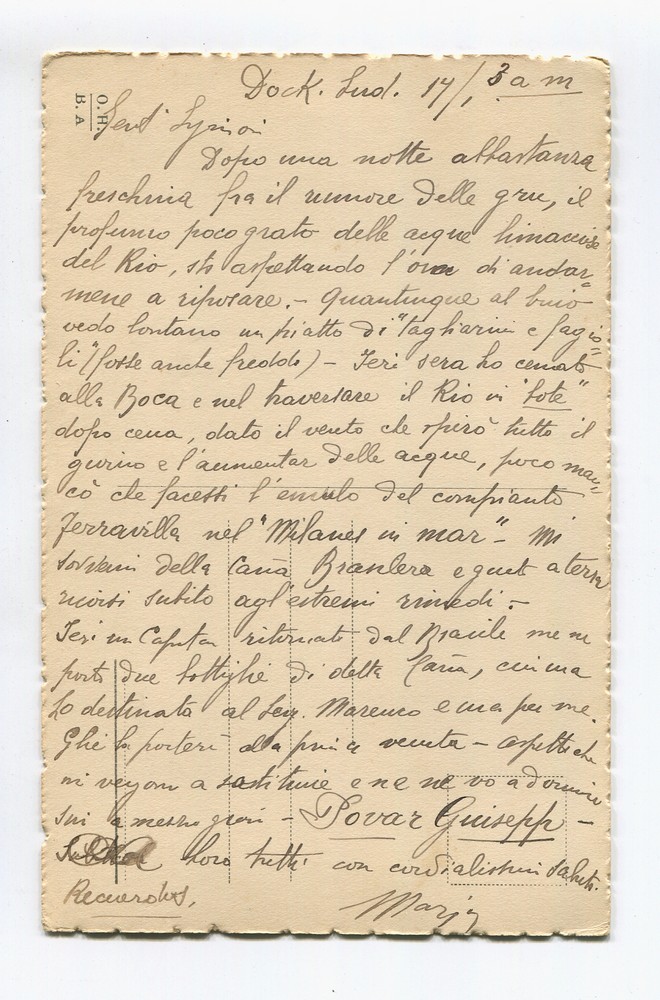 O. H.
B. A
Dock. Sud. 14/, 3 a m
Gent
Dopo una notte abbastanza
freschina fra il rumore delle gru, il
profumo poco grato delle acque limacciose
del Rio, sto aspettando l'ora di andar"
mene a riposare. - Quantunque al buio
vedo lontano un piatto di "tagliarini e fagio"
li" (fosse anche freddo) - Ieri sera ho cenato
alla Boca e nel traversare il Rio in "bote"
dopo cena, dato il vento che spirò tutto il
giorno e l'aumentar delle acque, poco man"
cò che facessi l'emulo del compianto
Ferravilla nel "Milanes in mar" - Mi
sovveni della Caña Brasilera e a terra
ricorsi subito agl'estremi rimedi. -
Ieri un Capitan ritornato dal Brasile me ne
portò due bottiglie di detta Caña, una
l'ò destinata al Seg. Marenco e una per me.
Glie la porterò alla prima venuta - aspetto che
mi vengono a sostituire e me ne vo a dormire
sin a mezzo giorno - Povar Guisepp -
loro tutti con cordialissimi saluti.
Recuerdos,